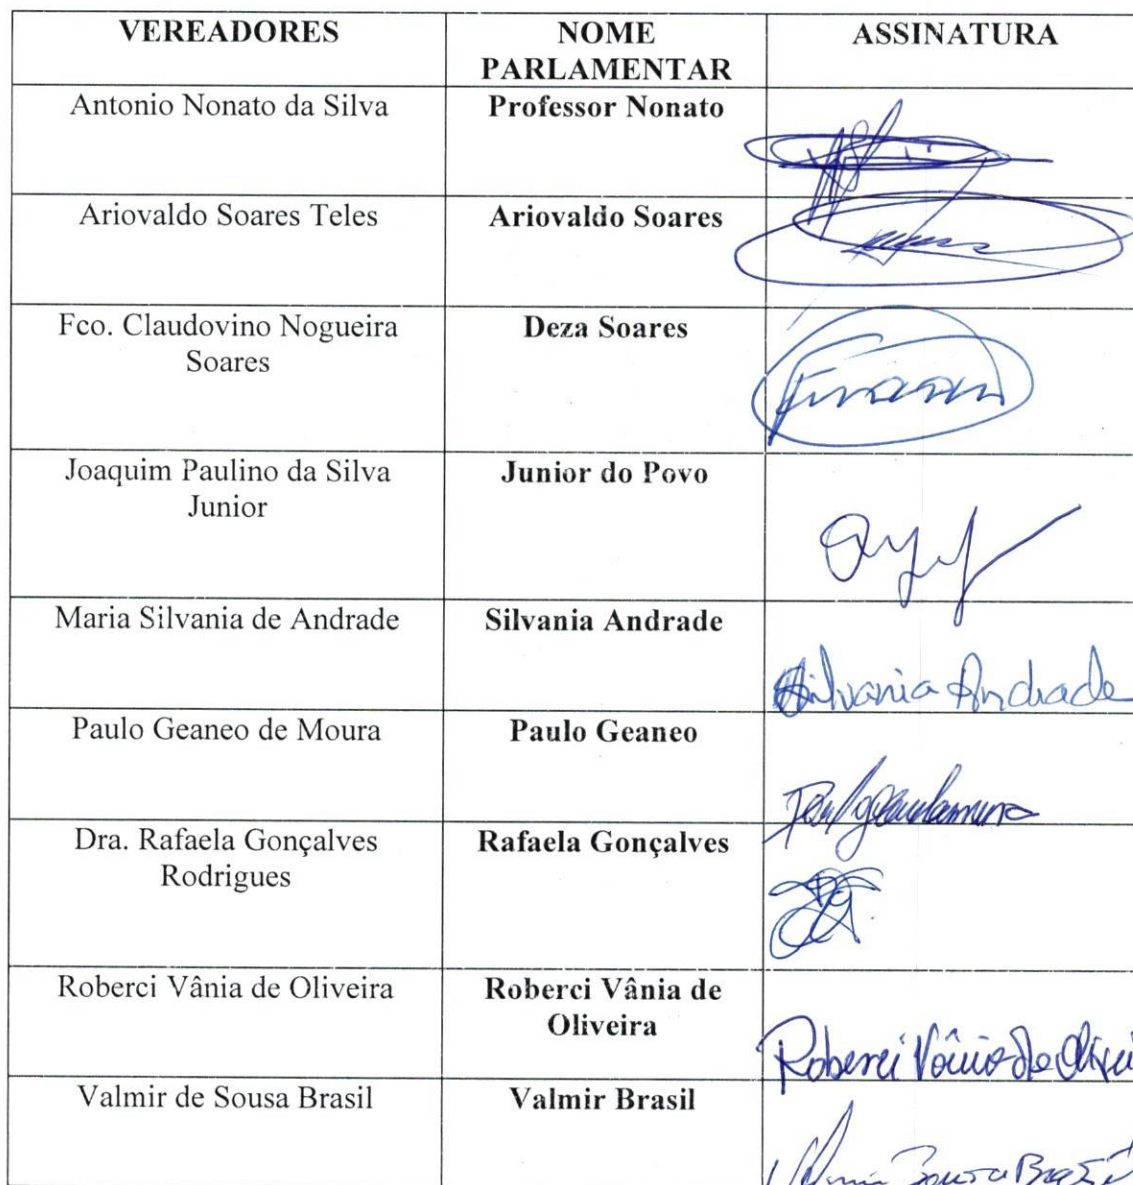 VEREADORES
NOME
PARLAMENTAR
ASSINATURA
Antonio Nonato da Silva
Professor Nonato
Ariovaldo Soares Teles
Ariovaldo Soares
Fco. Claudovino Nogueira
Soares
Deza Soares
Joaquim Paulino da Silva
Junior
Junior do Povo
Maria Silvania de Andrade
Silvania Andrade
Silvania Andrade
Paulo Geaneo de Moura
Paulo Geaneo
Dra. Rafaela Gonçalves
Rodrigues
Rafaela Gonçalves
Roberci Vânia de Oliveira
Roberci Vânia de
Oliveira
Roberci Vânia de Olivei
Valmir de Sousa Brasil
Valmir Brasil
Sousa Brasil